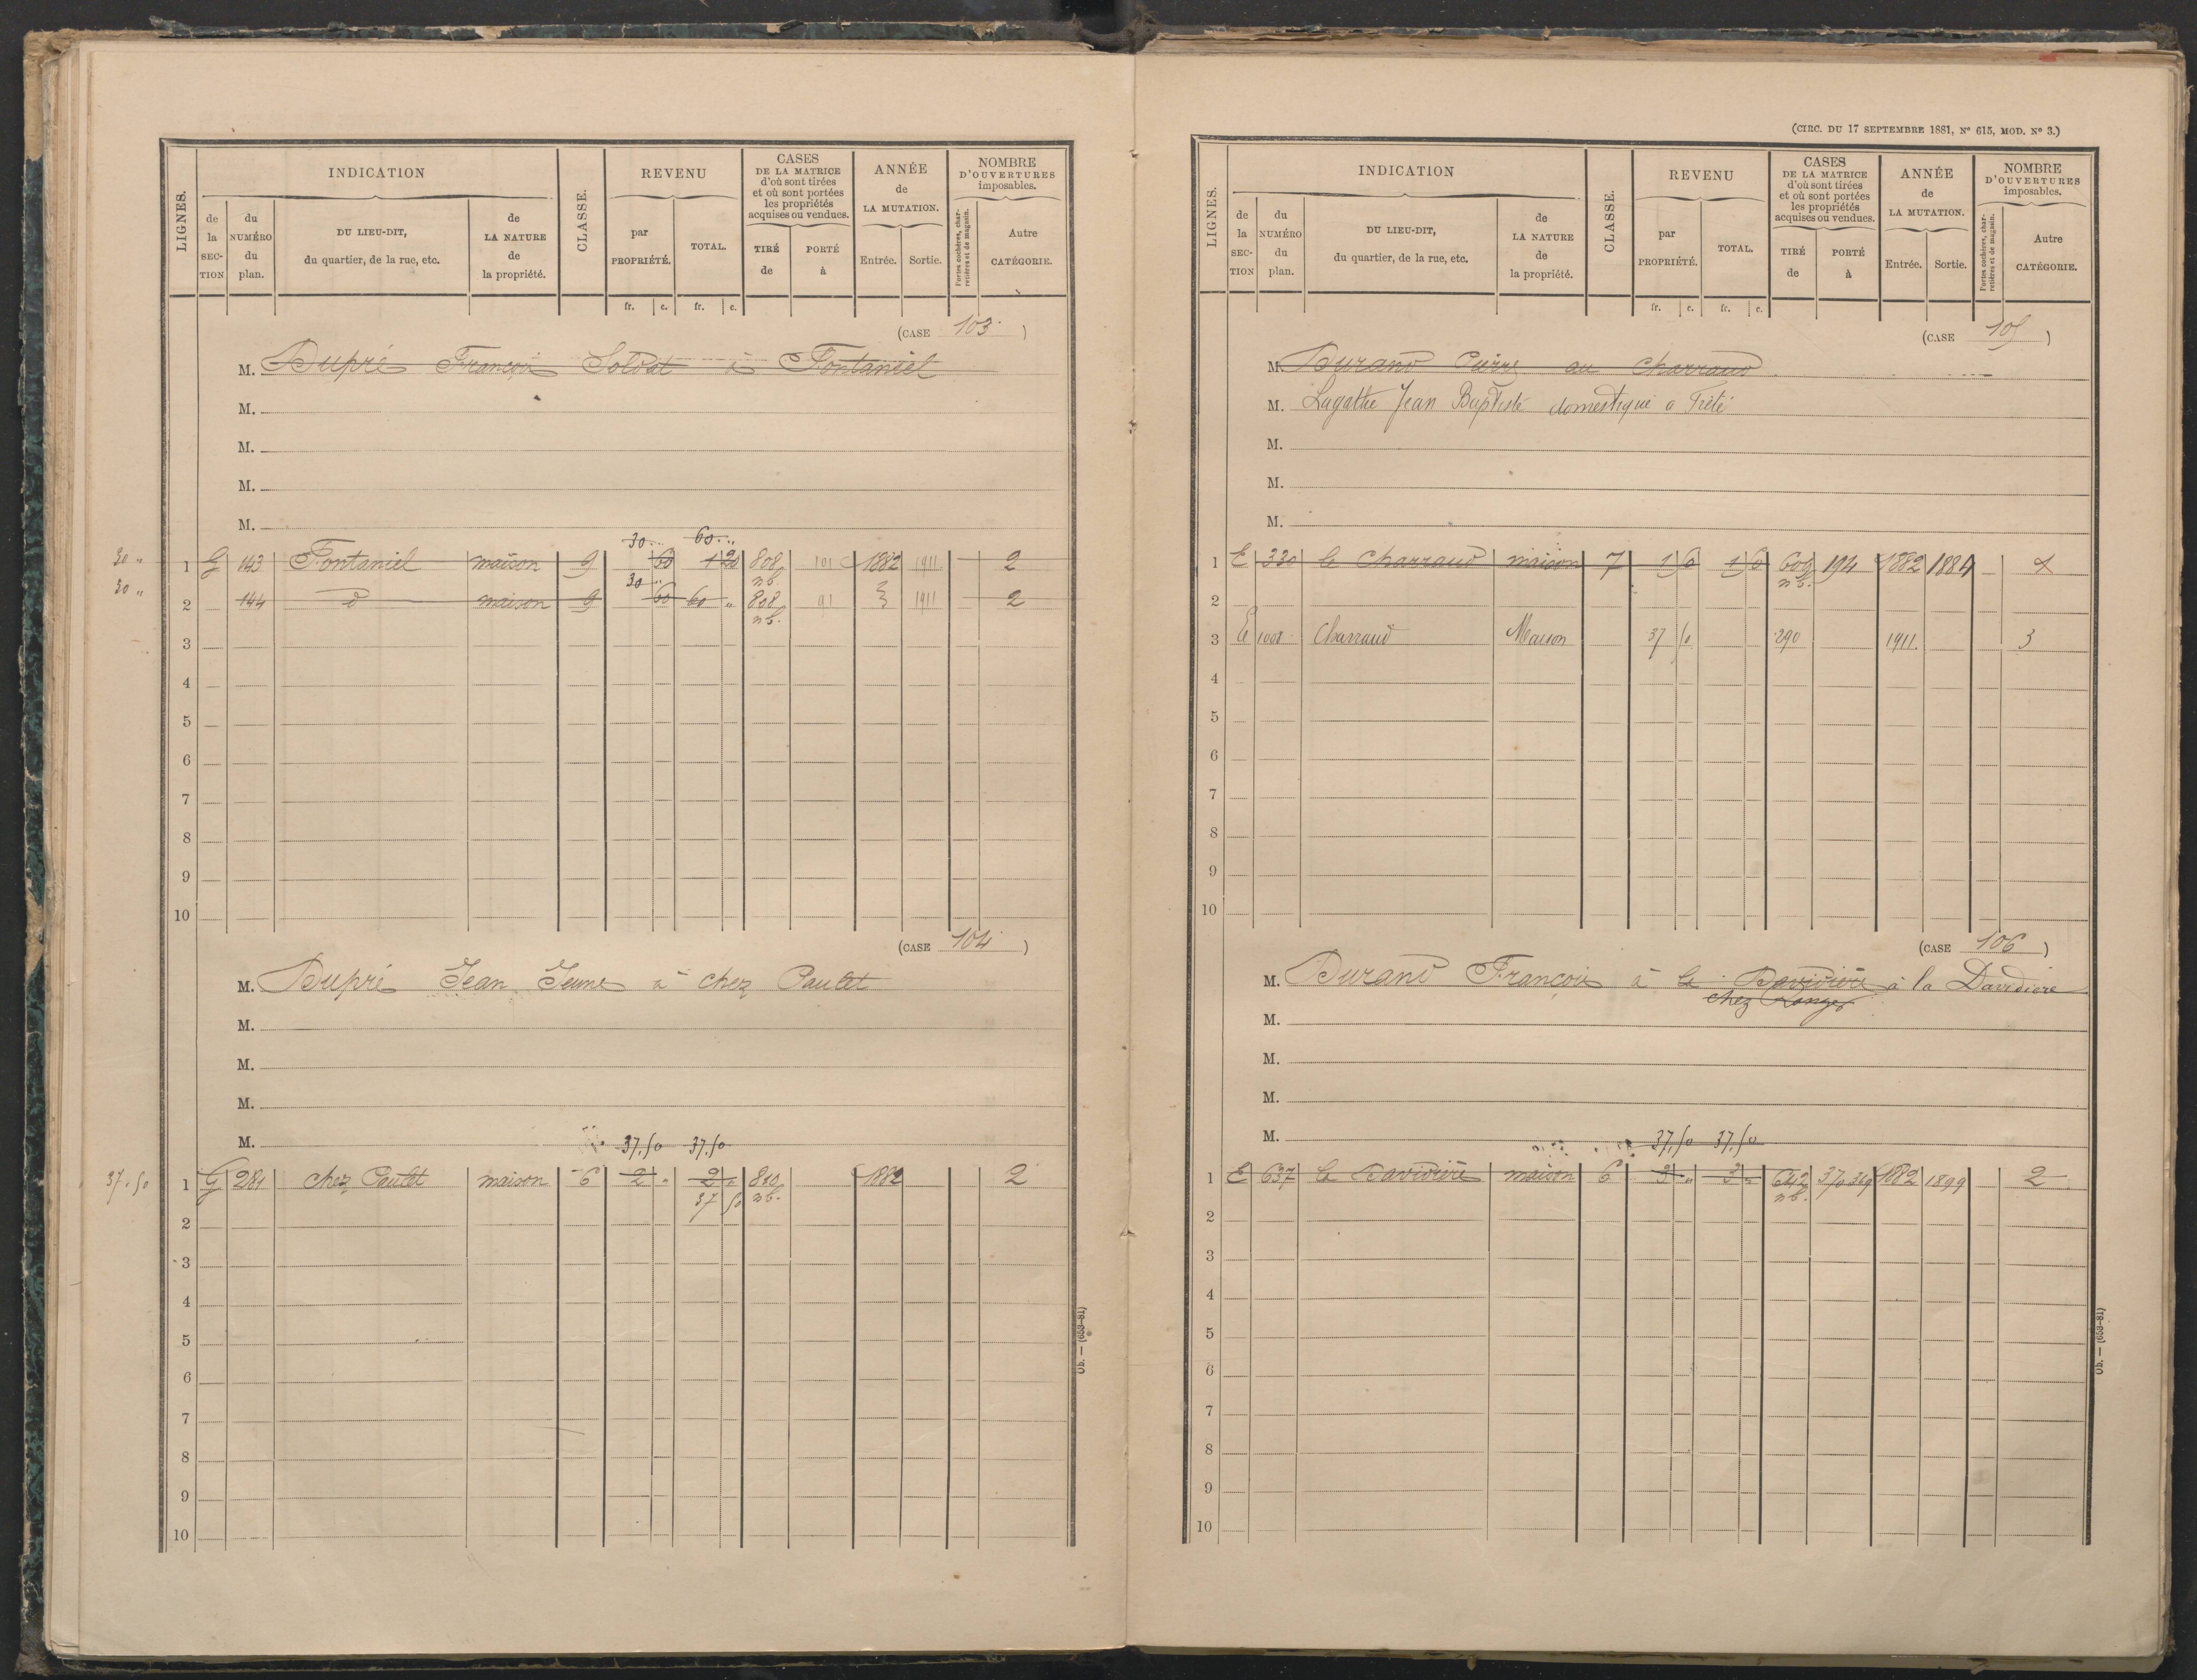 LIGNES.
INDICATION
de la SECTION
du NUMÉRO du plan.
DU LIEU-DIT, du quartier, de la rue, etc.
de LA NATURE de la propriété.
CLASSE.
REVENU
par PROPRIÉTÉ.
TOTAL.
fr. c. fr. c.
CASES DE LA MATRICE d'où sont tirées et où sont portées les propriétés acquises ou vendues.
TIRÉ de
PORTÉ à
ANNÉE de LA MUTATION.
Entrée. Sortie.
NOMBRE D'OUVERTURES imposables.
Portes cochères, charretières et de magasin.
Autre CATÉGORIE.
(CASE 103)
M. Dupré François Soldat à Fontaniel
M.
M.
M.
M.
30.. 60..
30 " 1 G 143 Fontaniel maison 9 60 1 20 808 n b. 101 1882 1911 2
30..
30 " 2 144 d° maison 9 60 60 " 808 n b. 91 1911 2
3
4
5
6
7
8
9
10
(CASE 104)
M. Dupré Jean Jeune à chez Paulet
M.
M.
M.
M.
37.50 37.50
37.50 1 G 281 chez Paulet maison 6 2 " 2 " 810 n b. 1882 2
37 50
2
3
4
5
6
7
8
9
10
Ob. — (653-81)
(CIRC. DU 17 SEPTEMBRE 1881, N° 615, MOD. N° 3.)
LIGNES.
INDICATION
de la SECTION
du NUMÉRO du plan.
DU LIEU-DIT, du quartier, de la rue, etc.
de LA NATURE de la propriété.
CLASSE.
REVENU
par PROPRIÉTÉ.
TOTAL.
fr. c. fr. c.
CASES DE LA MATRICE d'où sont tirées et où sont portées les propriétés acquises ou vendues.
TIRÉ de
PORTÉ à
ANNÉE de LA MUTATION.
Entrée. Sortie.
NOMBRE D'OUVERTURES imposables.
Portes cochères, charretières et de magasin.
Autre CATÉGORIE.
(CASE 105)
M. Durand Pierre au Charraud
M. Lagathe Jean Baptiste domestique a
M.
M.
M.
1 E 330 le Charraud maison 7 609 n b. 194 1882 1884
2
3 E 1008 Charraud Maison 37 50 290 1911 3
4
5
6
7
8
9
10
(CASE 106)
M. Durand François à la Davidière à la Davidière
chez
M.
M.
M.
M.
37.50 37.50
1 E 637 la Davidière maison 6 3 " 3 " 642 n b. 370 1882 1899 2
2
3
4
5
6
7
8
9
10
Ob. — (653-81)